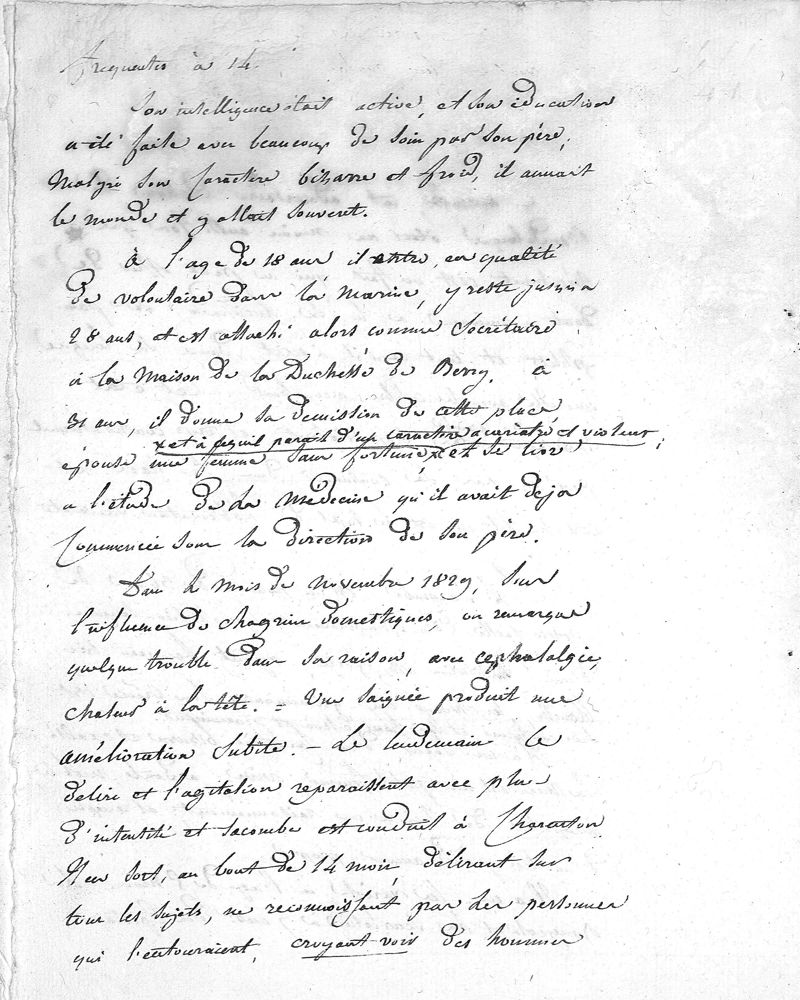 frequentes à 14.
Son intelligence était active, et son éducation
a été faite avec beaucoup de soin par son père,
Malgré son caractère bizarre et froid, il aimait
le monde et y allait souvent.
à l'age de 18 ans il entre en qualité
de volontaire dans la marine, y reste jusqu'a
28 ans, et est attaché alors comme Secrétaire
à la Maison de la Duchesse de Berry. à
31 ans, il donne sa demission de cette place,
x et à ce qu'il parait d'un caractère acariatre et violent,
épouse une femme sans fortune x et se livre
a l'étude de la Médecine qu'il avait deja
Commencée sous la direction de son père.
Dans le mois de novembre 1829, sous
l'influence de chagrins domestiques, on remarque
quelque trouble dans sa raison, avec cephalalgie,
chaleur à la tête. = Une saignée produit une
amélioration subite. – Le lendemain le
delire et l'agitation reparaissent avec plus
d'intensité et Lacombe est conduit à Charenton
Il en sort, au bout de 14 mois, délirant sur
tous les sujets, ne reconnoissant pas les personnes
qui l'entouraient, croyant voir des hommes